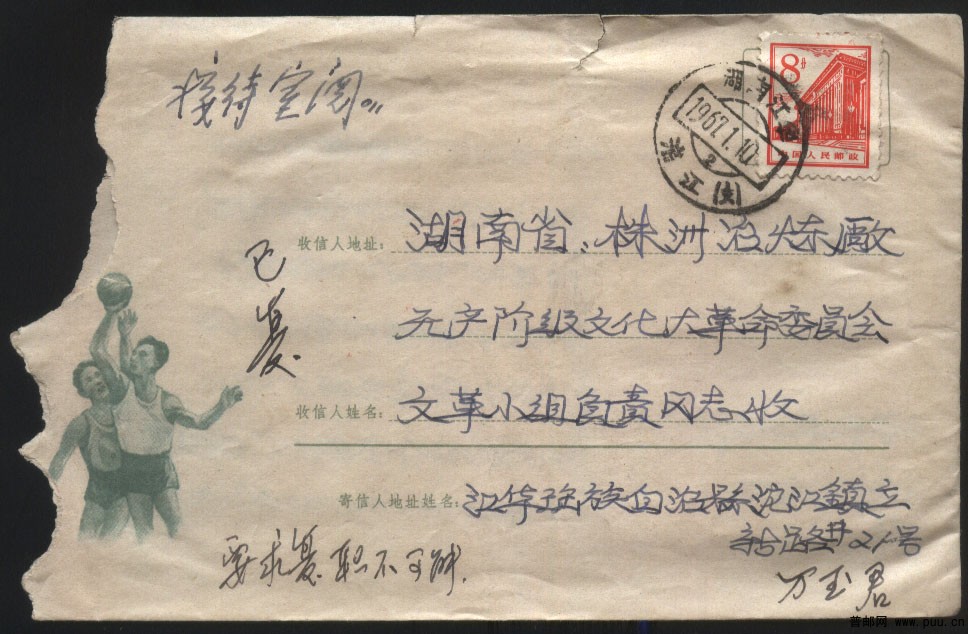 接待室阅
8分
中国人民邮政
湖南江华
1967.1.10
2
沱江(支)
收信人地址:湖南省、株洲冶炼廠
无产阶级文化大革命委员会
收信人姓名:文革小组负责同志收
已复.
寄信人地址姓名:江华瑶族自治县沱江鎮立
新路 21号
万玉君
要求复职不可能.
普邮网 www.puu.cn